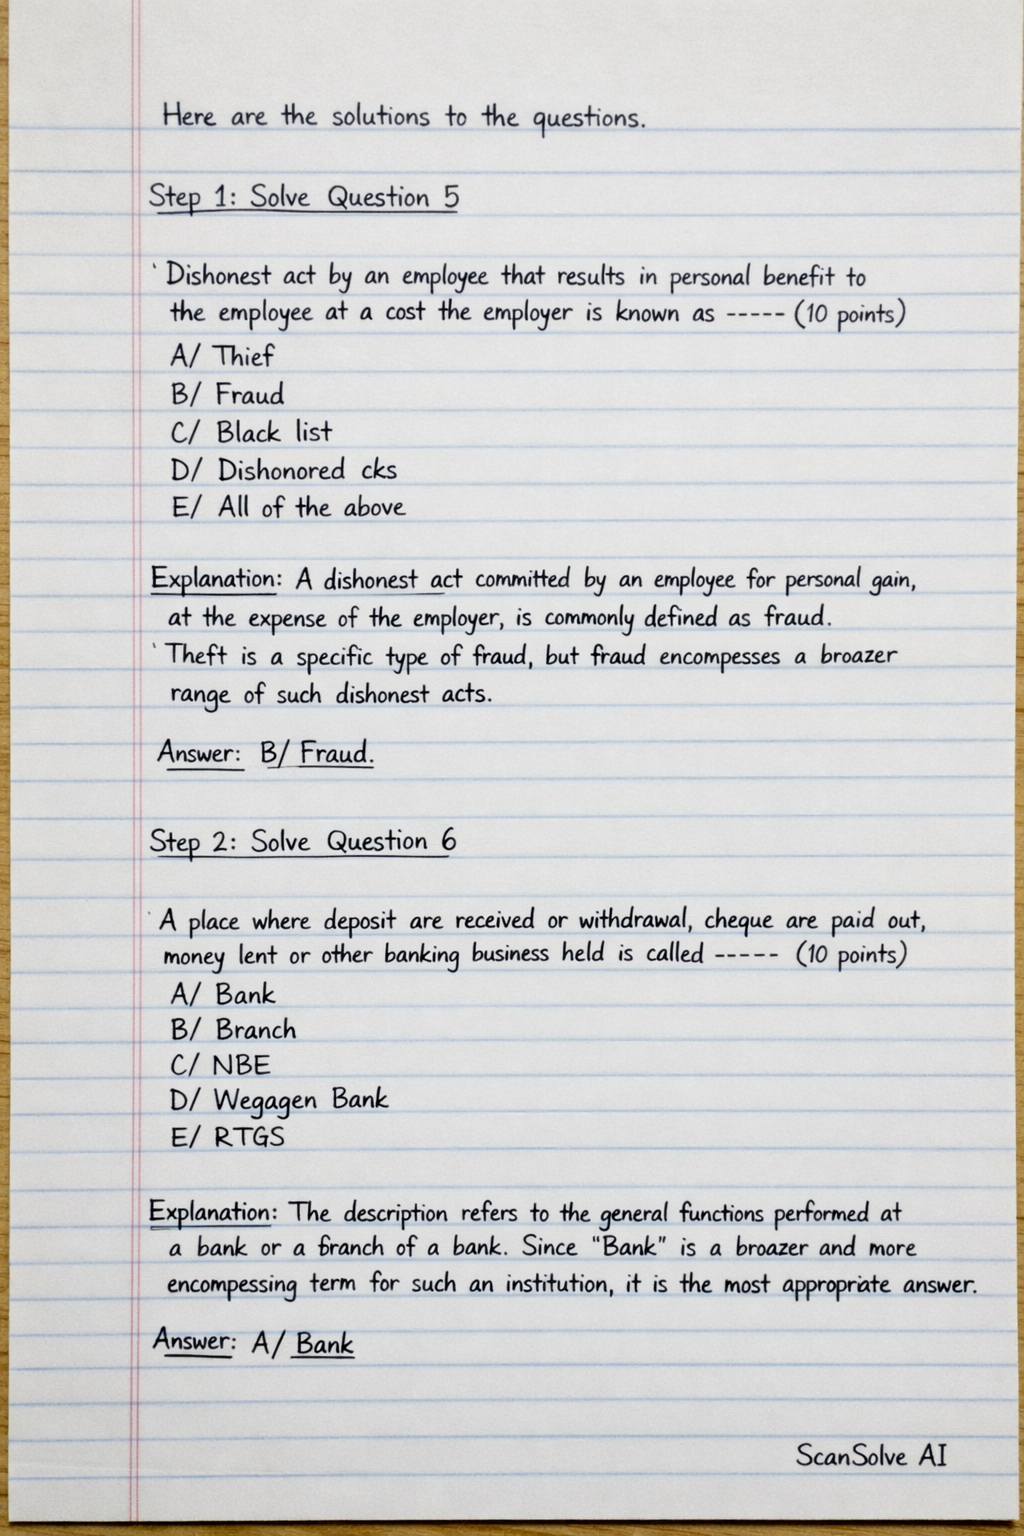 Here are the solutions to the questions.
Step 1: Solve Question 5
Dishonest act by an employee that results in personal benefit to
the employee at a cost the employer is known as ----- (10 points)
A/ Thief
B/ Fraud
C/ Black list
D/ Dishonored cks
E/ All of the above
Explanation: A dishonest act committed by an employee for personal gain,
at the expense of the employer, is commonly defined as fraud.
Theft is a specific type of fraud, but fraud encompesses a broazer
range of such dishonest acts.
Answer: B/ Fraud.
Step 2: Solve Question 6
A place where deposit are received or withdrawal, cheque are paid out,
money lent or other banking business held is called ----- (10 points)
A/ Bank
B/ Branch
C/ NBE
D/ Wegagen Bank
E/ RTGS
Explanation: The description refers to the general functions performed at
a bank or a branch of a bank. Since "Bank" is a broazer and more
encompessing term for such an institution, it is the most appropriate answer.
Answer: A/ Bank
ScanSolve AI